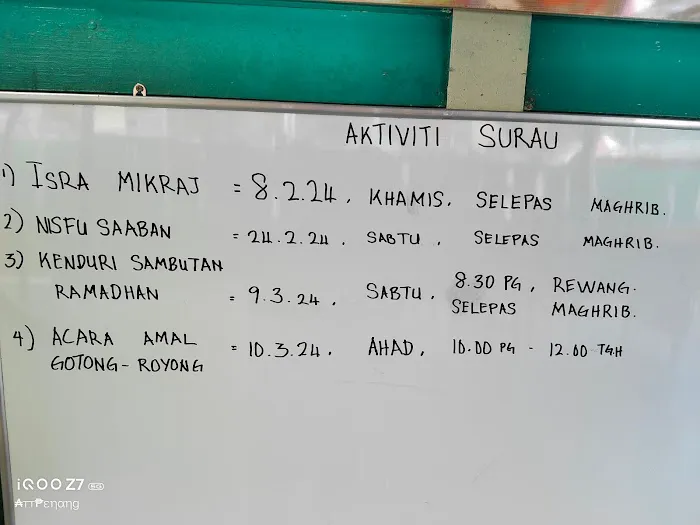 AKTIVITI SURAU
1) ISRA MIKRAJ = 8.2.24, KHAMIS, SELEPAS MAGHRIB.
2) NISFU SAABAN = 24.2.24, SABTU, SELEPAS MAGHRIB.
3) KENDURI SAMBUTAN
RAMADHAN = 9.3.24, SABTU, 8.30 PG, REWANG.
SELEPAS MAGHRIB.
4) ACARA AMAL
GOTONG-ROYONG = 10.3.24, AHAD, 10.00 PG - 12.00 TGH
iQOO Z7 5G
₳ттPɐnang